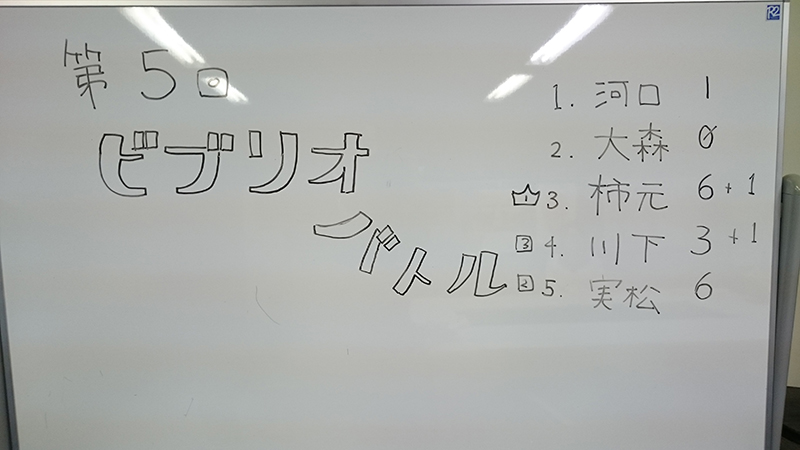 第5回
ビブリオ
バトル
1. 河口 1
2. 大森 0
1 3. 柿元 6+1
3 4. 川下 3+1
2 5. 実松 6